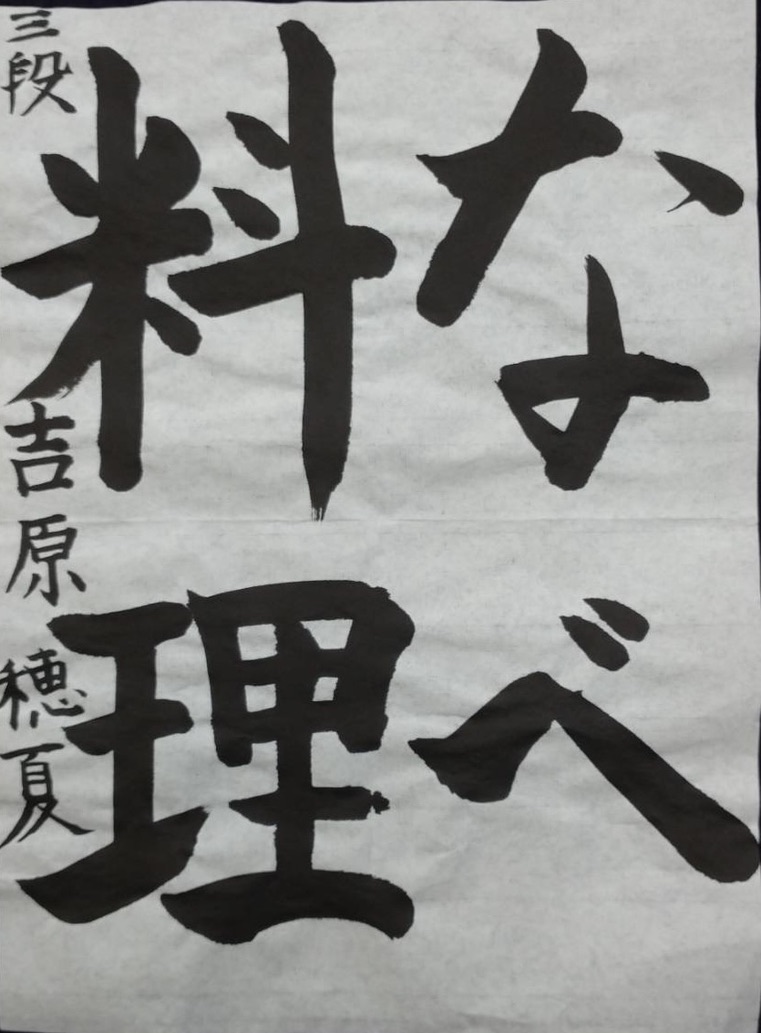 なべ
料理
三段 吉原 穂夏